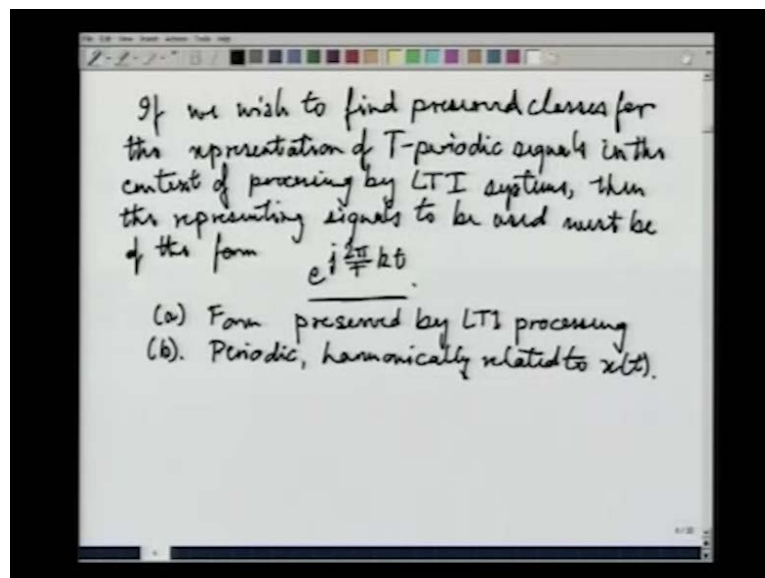 If we wish to find preserved classes for
the representation of T-periodic signals in the
context of processing by LTI systems, then
the representing signals to be used must be
of the form e^{j \frac{2π}{T} kt}.
(a) Form preserved by LTI processing
(b). Periodic, harmonically related to x(t).